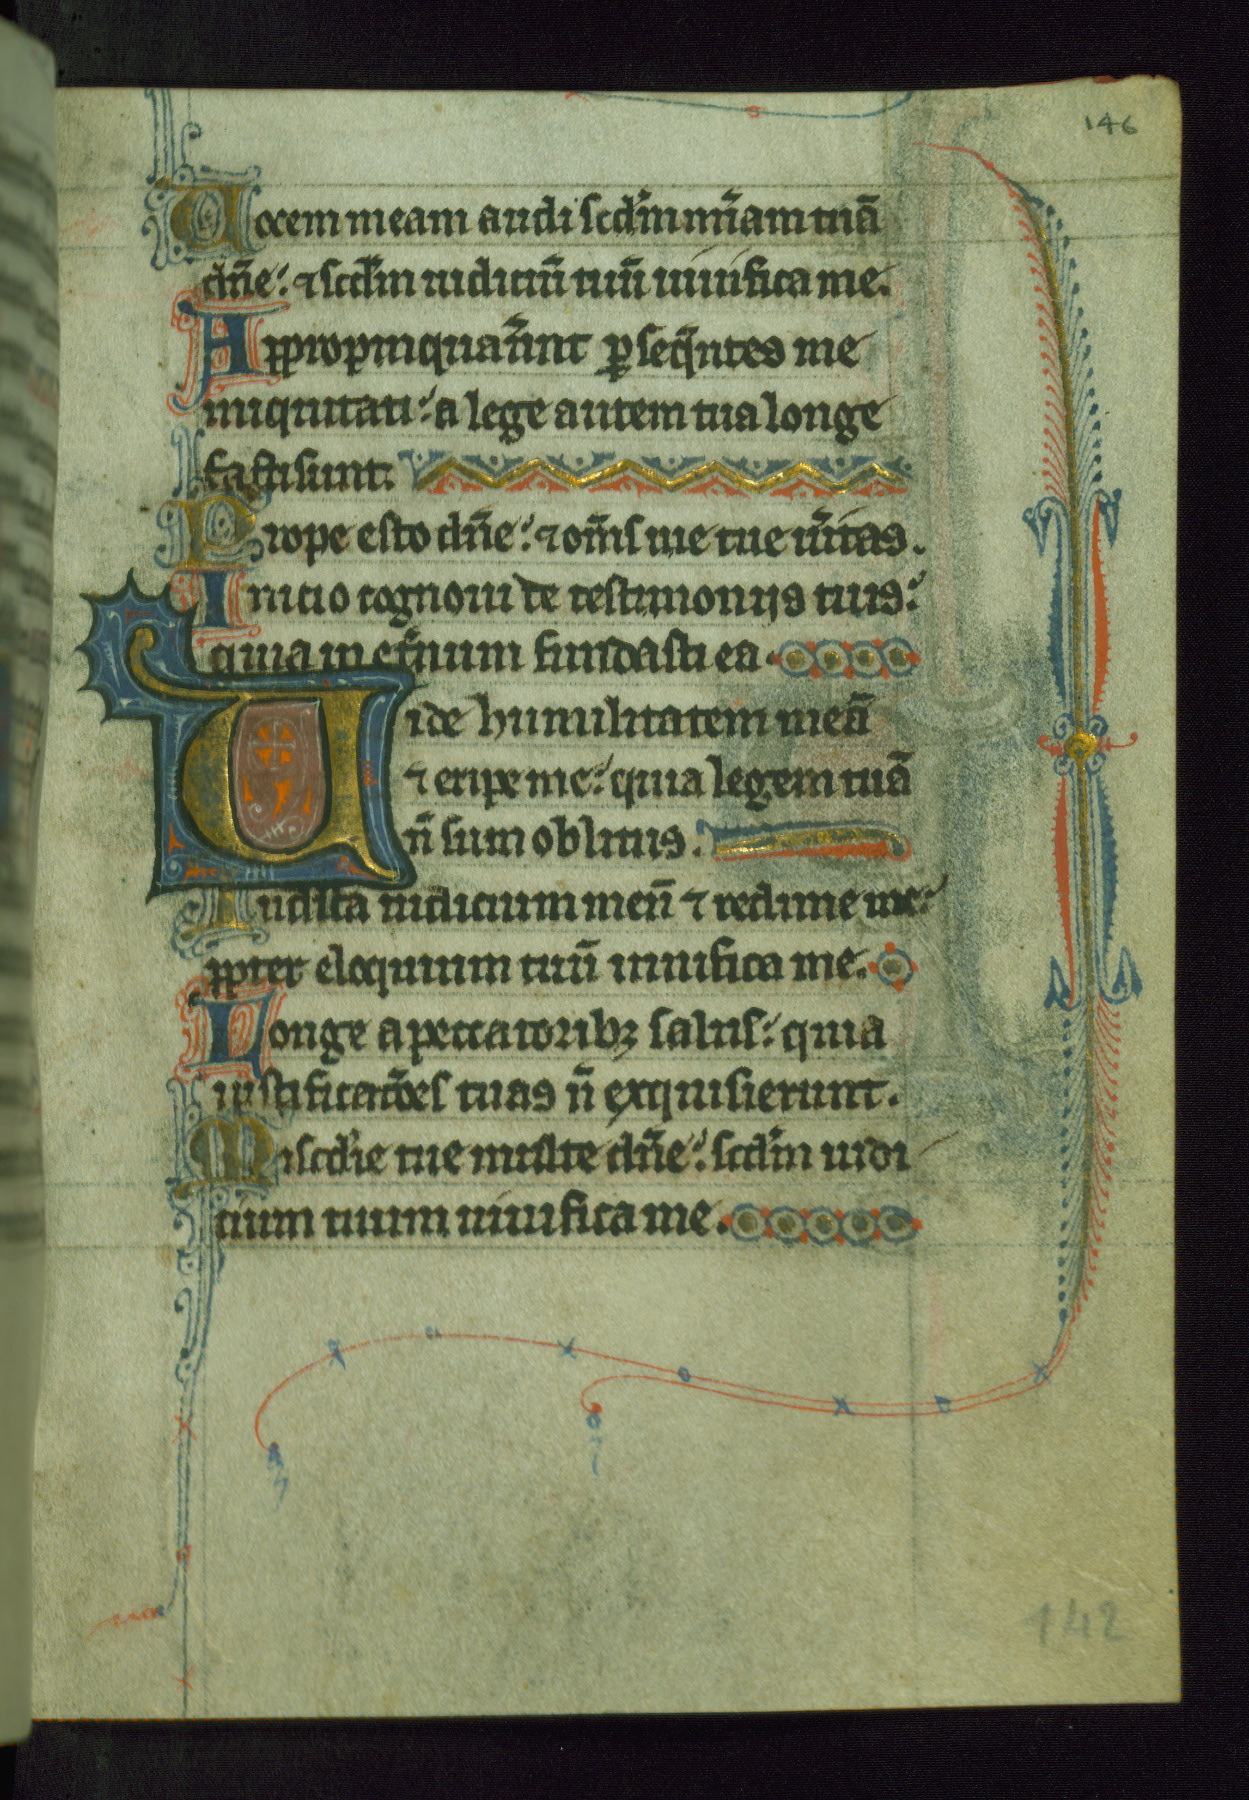 146
Uocem meam audi scd'm mi̅am tuā
dn̄e: ⁊ scd'm iudiciū tuū uiuifica me.
Appropinquauer̄nt ꝑseq̄ntes me
iniquitati: a lege autem tua longe
facti sunt.
Prope esto dn̄e: ⁊ om̄s uie tue uēitas.
Inicio cognoui de testimonijs tuis:
quia in et̄num fundasti ea
Uide humilitatem meā
⁊ eripe me: quia legem tuā
n̄ sum oblitus.
Iudica iudicium meū ⁊ redime me:
ꝓpter eloquium tuū uiuifica me.
Longe a peccatoribꝫ salus: quia
iustificatōes tuas n̄ exquisierunt.
Miscd'ie tue multe dn̄e: scd'm iudi
cium tuum uiuifica me.
142